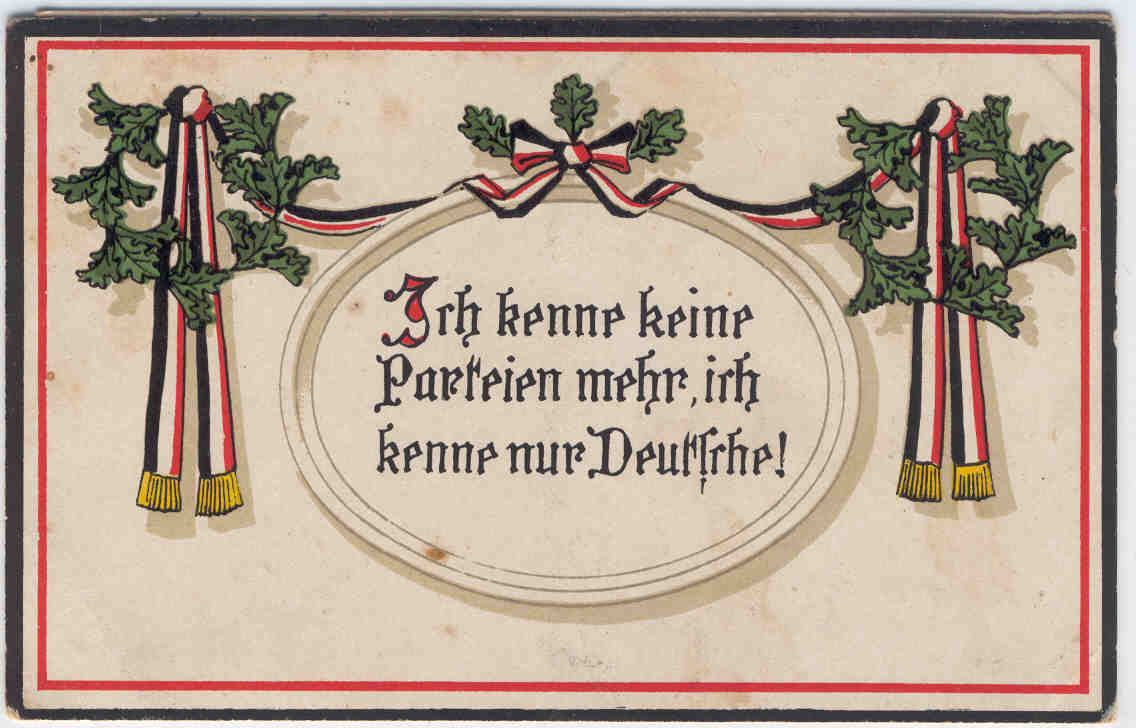 Ich kenne keine
Parteien mehr, ich
kenne nur Deutſche!